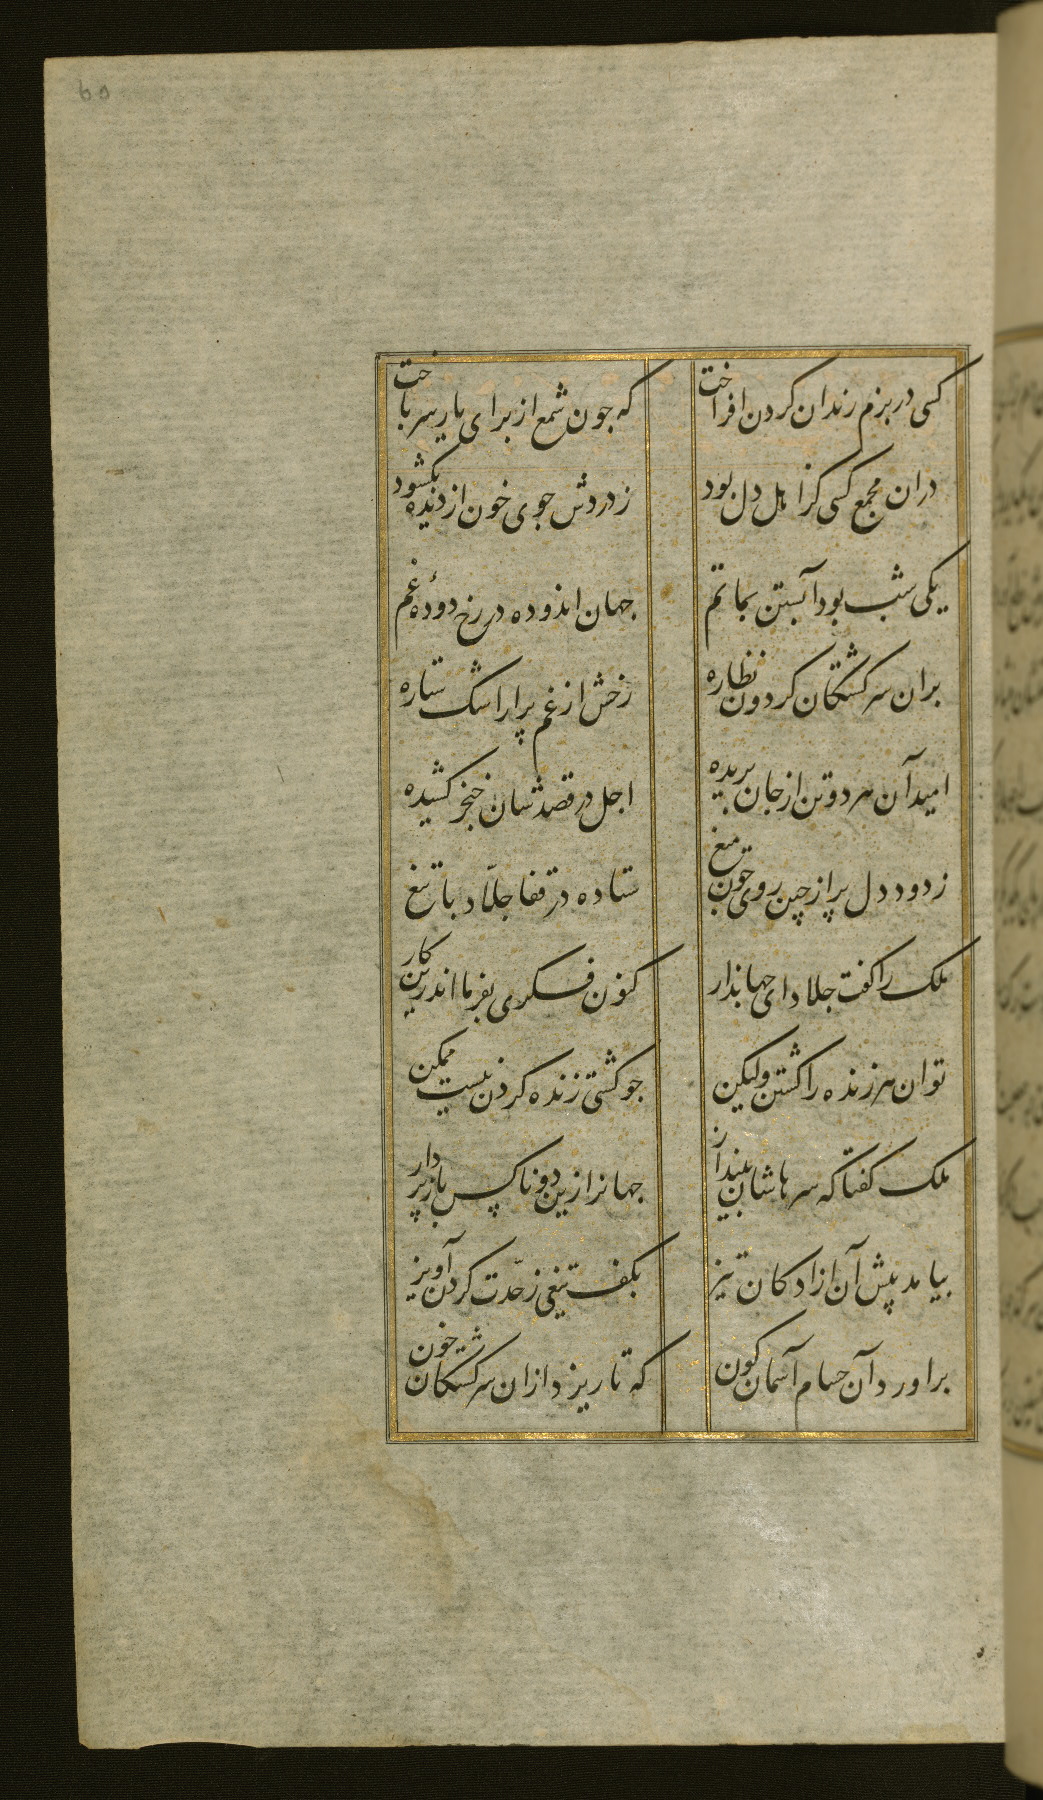 کسی در بزم رندان کردن افراخت که جون شمع از برای یار سر باخت
دران مجمع کسی کز اهل دل بود ز دردش جوی خون از دیده بکشود
یکی شب بود آبستن بماتم جهان اندوده در رخ دودهٔ غم
بران سرکشتکان کردون نظاره رخش از غم پر از اشک ستاره
امید آن هر دو تن از جان بریده اجل در قصدشان خنجر کشیده
ز دود دل پر از چین روی چون میغ ستاده در قفا جلّاد با تیغ
ملک را کفت جلاد ای جهاندار کنون فکری بفرما اندرین کار
توان هر زنده را کشتن ولیکن جو کشتی زنده کردن نیست ممکن
ملک کفتا که سرهاشان بینداز جهانرا ازین دو ناکس باز پرداز
بیامد پیش آن ازادکان تیز بکف تیغی ز حدّت کردن آویز
براورد آن حسام آسمان کون که تا ریزد ازان سرکشتکان خون